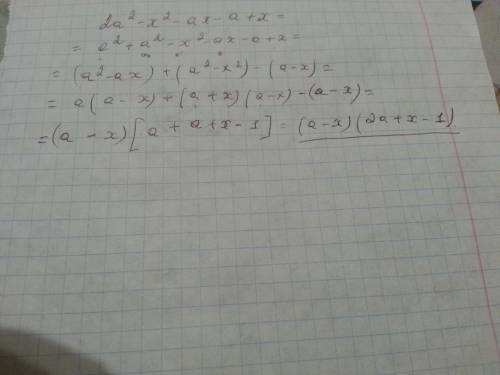 2a² - x² - ax - a + x =
= a² + a² - x² - ax - a + x =
= (a² - ax) + (a² - x²) - (a - x) =
= a(a - x) + (a + x)(a - x) - (a - x) =
= (a - x)[a + a + x - 1] = (a - x)(2a + x - 1)